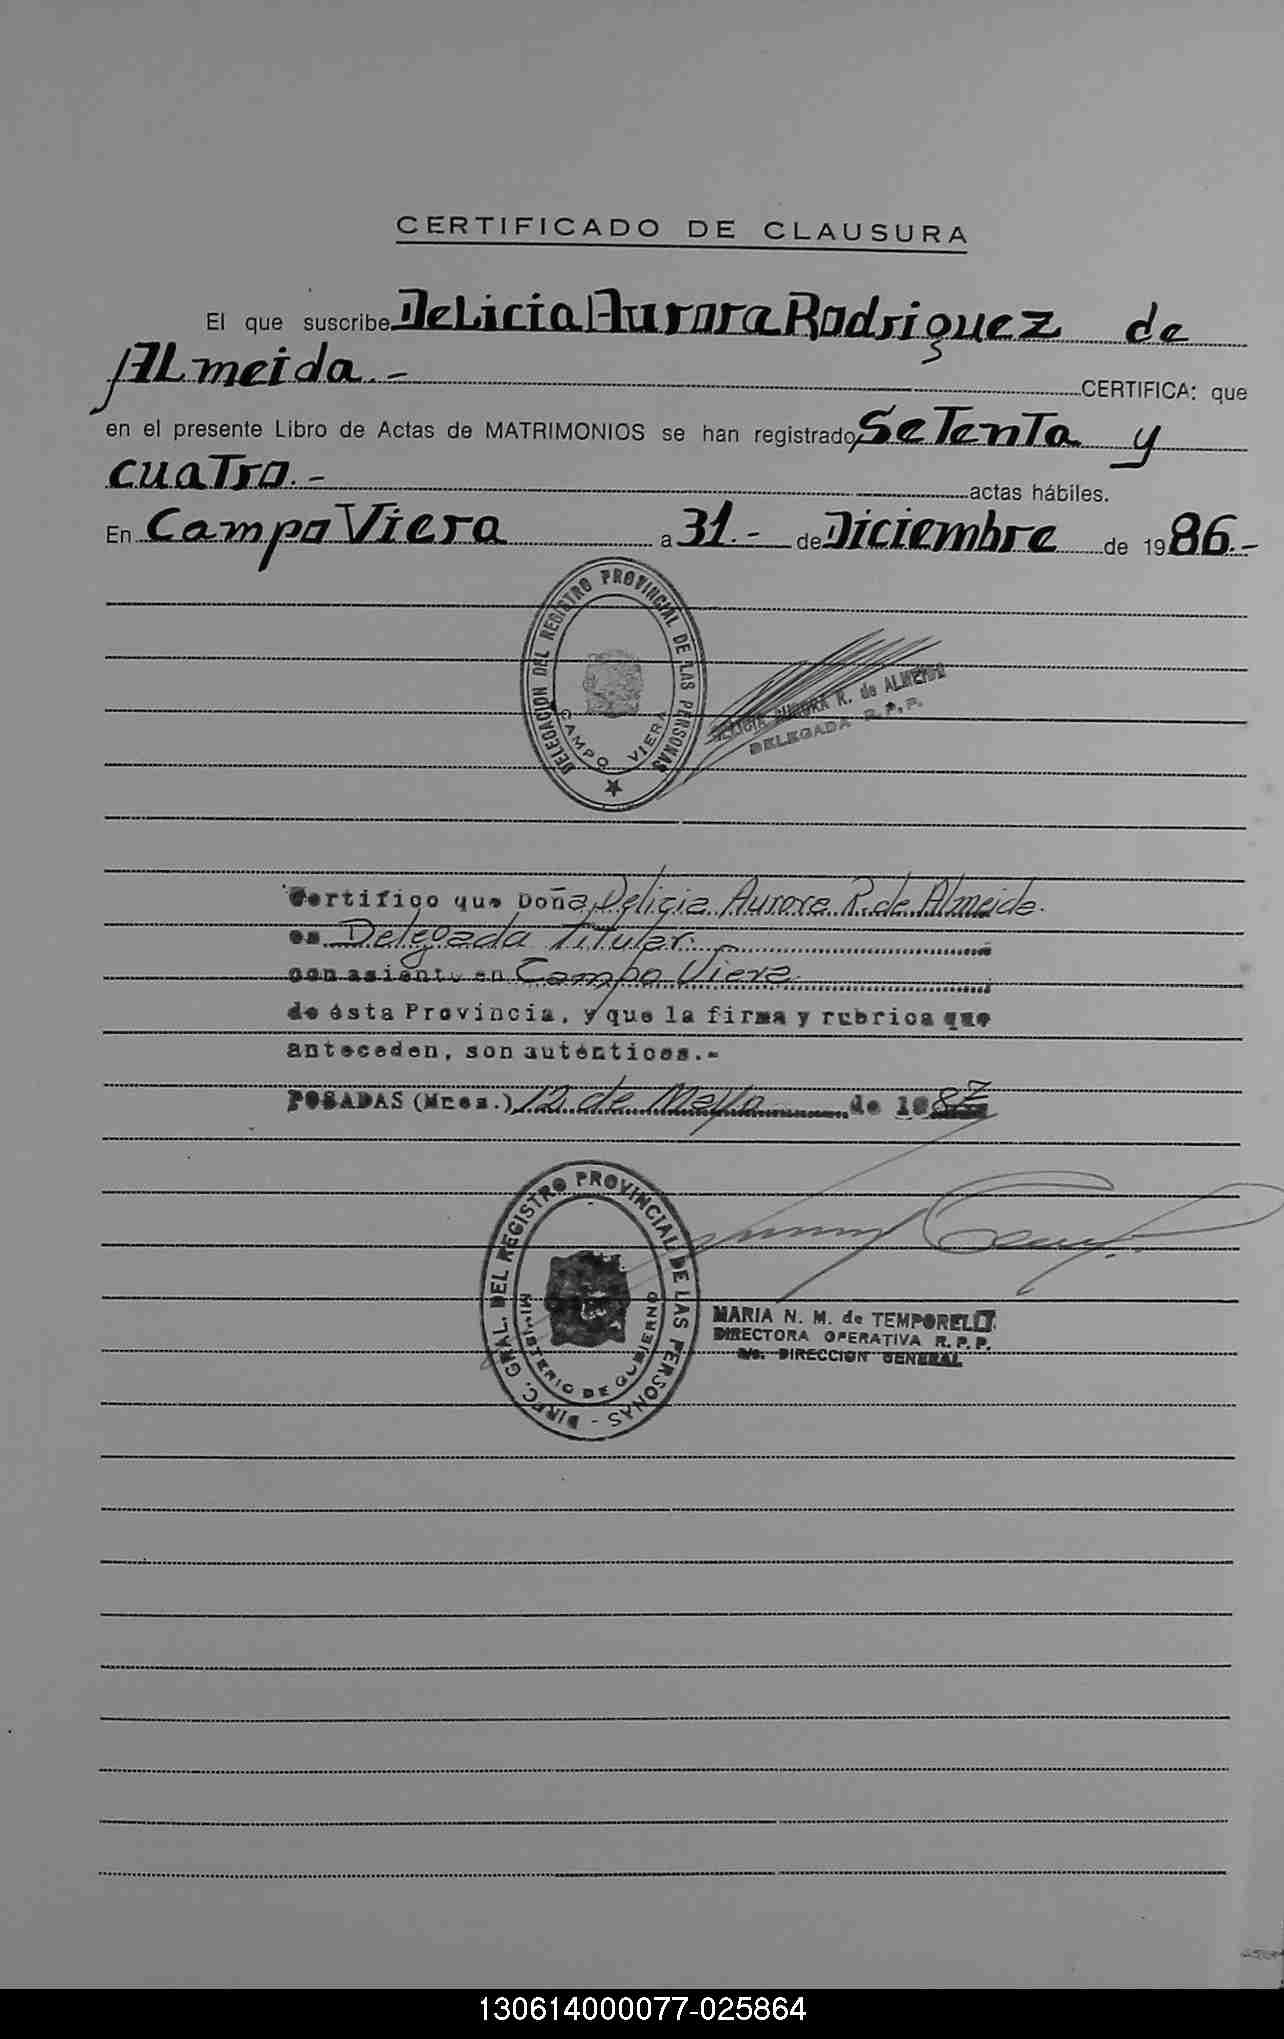 CERTIFICADO DE CLAUSURA
El que suscribe Delicia Aurora Rodriguez de
Almeida.- CERTIFICA: que
en el presente Libro de Actas de MATRIMONIOS se han registrado Setenta y
cuatro.- actas hábiles.
En Campo Viera a 31.- de Diciembre de 1986.-
DELEGACION DEL REGISTRO PROVINCIAL DE LAS PERSONAS
CAMPO VIERA
DELICIA AURORA R. de ALMEIDA
DELEGADA R.P.P.
Certifico que Doña Delicia Aurora R. de Almeida.
es Delegada Titular.
con asiento en Campo Viera.
de ésta Provincia, y que la firma y rubrica que
anteceden, son auténticas.-
POSADAS (Mnes.) 12 de Mayo de 1987
DIREC. GRAL. DEL REGISTRO PROVINCIAL DE LAS PERSONAS -
MINISTERIO DE GOBIERNO
MARIA N. M. de TEMPORELLI
DIRECTORA OPERATIVA R.P.P.
a/c. DIRECCION GENERAL
130614000077-025864